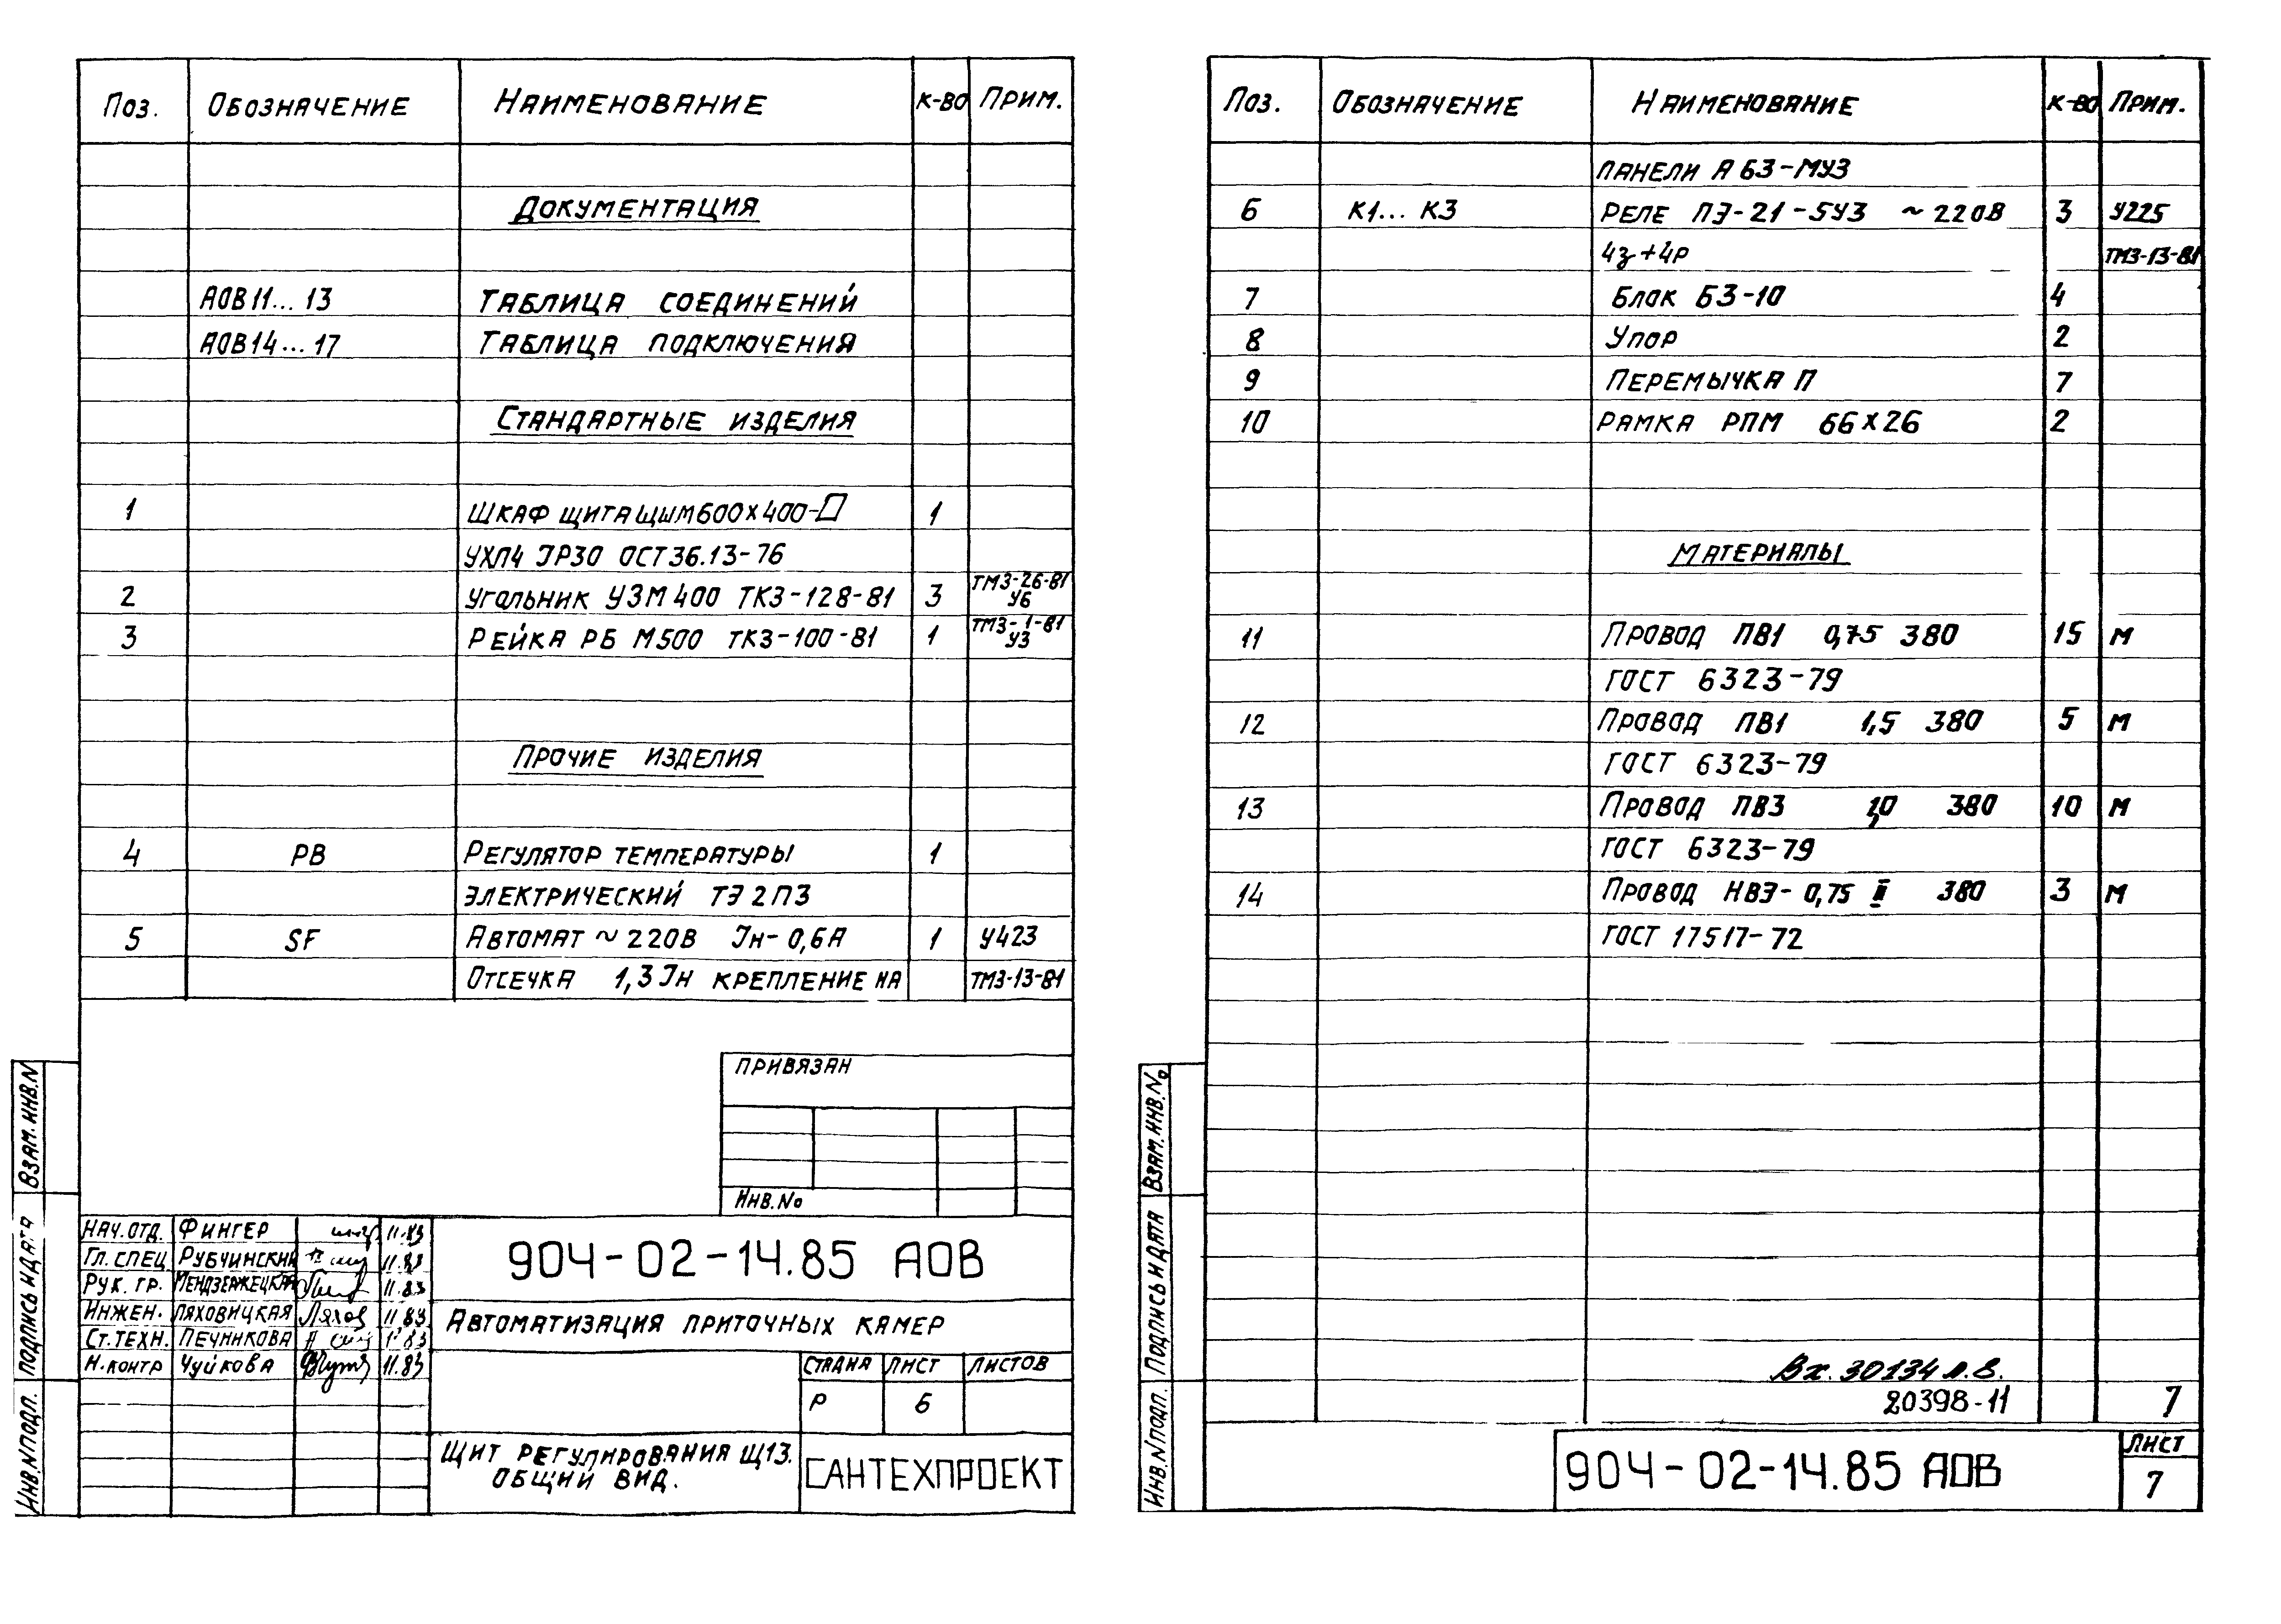 Поз. Обозначение Наименование К-во Прим.
Документация
АОВ11...13 Таблица соединений
АОВ14...17 Таблица подключения
Стандартные изделия
1 Шкаф щита ЩШМ600х400-П 1
УХЛ4 IP30 ОСТ36.13-76
2 Угольник УЗМ400 ТК3-128-81 3 ТМ3-26-81 У6
3 Рейка РБ М500 ТК3-100-81 1 ТМ3-1-81 У3
Прочие изделия
4 РВ Регулятор температуры 1
электрический ТЭ2П3
5 SF Автомат ~220В Iн-0,6А 1 У423
Отсечка 1,3Iн крепление на ТМ3-13-81
Привязан
Инв.№
Нач.отд. Фингер 11.83
Гл.спец Рубчинский 11.83
Рук.гр. Мендзержецкая 11.83
Инжен. Ляховицкая Ляхов 11.83
Ст.техн. Печникова 11.83
Н.контр Чуйкова 11.83
904-02-14.85 АОВ
Автоматизация приточных камер
Стадия Лист Листов
Р 6
Щит регулирования Щ13.
Общий вид.
САНТЕХПРОЕКТ
Взам.инв.N
Подпись и дата
Инв.N подл.
Поз. Обозначение Наименование К-во Прим.
панели А63-МУ3
6 К1...К3 Реле ПЭ-21-5У3 ~220В 3 У225
4з+4р ТМ3-13-81
7 Блок БЗ-10 4
8 Упор 2
9 Перемычка П 7
10 Рамка РПМ 66х26 2
Материалы
11 Провод ПВ1 0,75 380 15 м
ГОСТ 6323-79
12 Провод ПВ1 1,5 380 5 м
ГОСТ 6323-79
13 Провод ПВ3 1,0 380 10 м
ГОСТ 6323-79
14 Провод НВЭ-0,75 II 380 3 м
ГОСТ 17517-72
Вх. 30134 л.в.
20398-11 7
904-02-14.85 АОВ
Лист
7
Взам.инв.№
Подпись и дата
Инв.N подл.